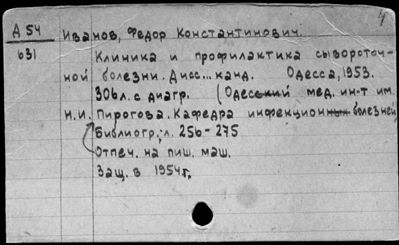 4
А 54 Иванов, Федор Константинович.
631 Клиника и профилактика сывороточ-
ной болезни. Дисс... канд. Одесса, 1953.
306л. с диагр. (Одесский мед. ин-т им.
Н.И. Пирогова. Кафедра инфекционных болезней
Библиогр.; л. 256-275
Отпеч. на пиш. маш.
Защ. в 1954г.